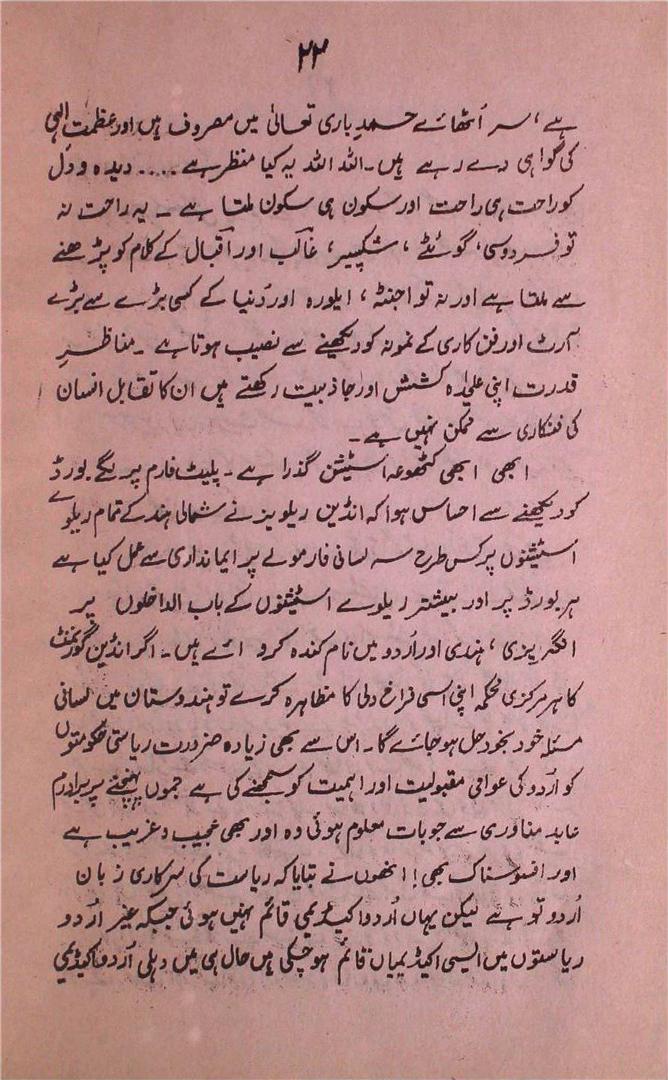 ۲۲
ہے، سر اُٹھائے حمدِ باری تعالیٰ میں مصروف ہیں اور عظمتِ الٰہی
کی گواہی دے رہے ہیں۔ اللہ اللہ یہ کیا منظر ہے ..... دیدہ و دل
کو راحت ہی راحت اور سکون ہی سکون ملتا ہے ۔ یہ راحت نہ
تو فردوسی، گوئٹے، شکیپیر، غالب اور اقبال کے کلام کو پڑھنے
سے ملتا ہے اور نہ تو اجنٹہ، ایلورہ اور دُنیا کے کسی بڑے سے بڑے
آرٹ اور فن کاری کے نمونہ کو دیکھنے سے نصیب ہوتا ہے ۔ مناظرِ
قدرت اپنی علیٰحدہ کشش اور جاذبیت رکھتے ہیں ان کا تقابل انسان
کی فنکاری سے ممکن نہیں ہے۔
ابھی ابھی کٹھوعہ اسٹیشن گذرا ہے ۔ پلیٹ فارم پر لگے بورڈ
کو دیکھنے سے احساس ہوا کہ انڈین ریلویز نے شمالی ہند کے تمام ریلوے
اسٹیشنوں پر کس طرح سہ لسانی فارمولے پر ایمانداری سے عمل کیا ہے
ہر بورڈ پر اور بیشتر ریلوے اسٹیشنوں کے باب الداخلوں پر
انگریزی، ہندی اور اُردو میں نام کندہ کروائے ہیں۔ اگر انڈین گورنمنٹ
کا ہر مرکزی محکمہ اپنی اسی فراخ دلی کا مظاہرہ کرے تو ہندوستان میں لسانی
مسئلہ خود بخود حل ہو جائے گا۔ اس سے بھی زیادہ ضرورت ریاستی حکومتوں
کو اُردو کی عوامی مقبولیت اور اہمیت کو سمجھنے کی ہے جموں پہنچنے پر برادرم
عابد مناوری سے جو بات معلوم ہوئی وہ اور بھی عجیب و غریب ہے
اور افسوسناک بھی! انھوں نے بتایا کہ ریاست کی سرکاری زبان
اُردو تو ہے لیکن یہاں اُردو اکیڈیمی قائم نہیں ہوئی جبکہ غیر اُردو
ریاستوں میں ایسی اکیڈیمیاں قائم ہو چکی ہیں حال ہی میں دہلی اُردو اکیڈیمی